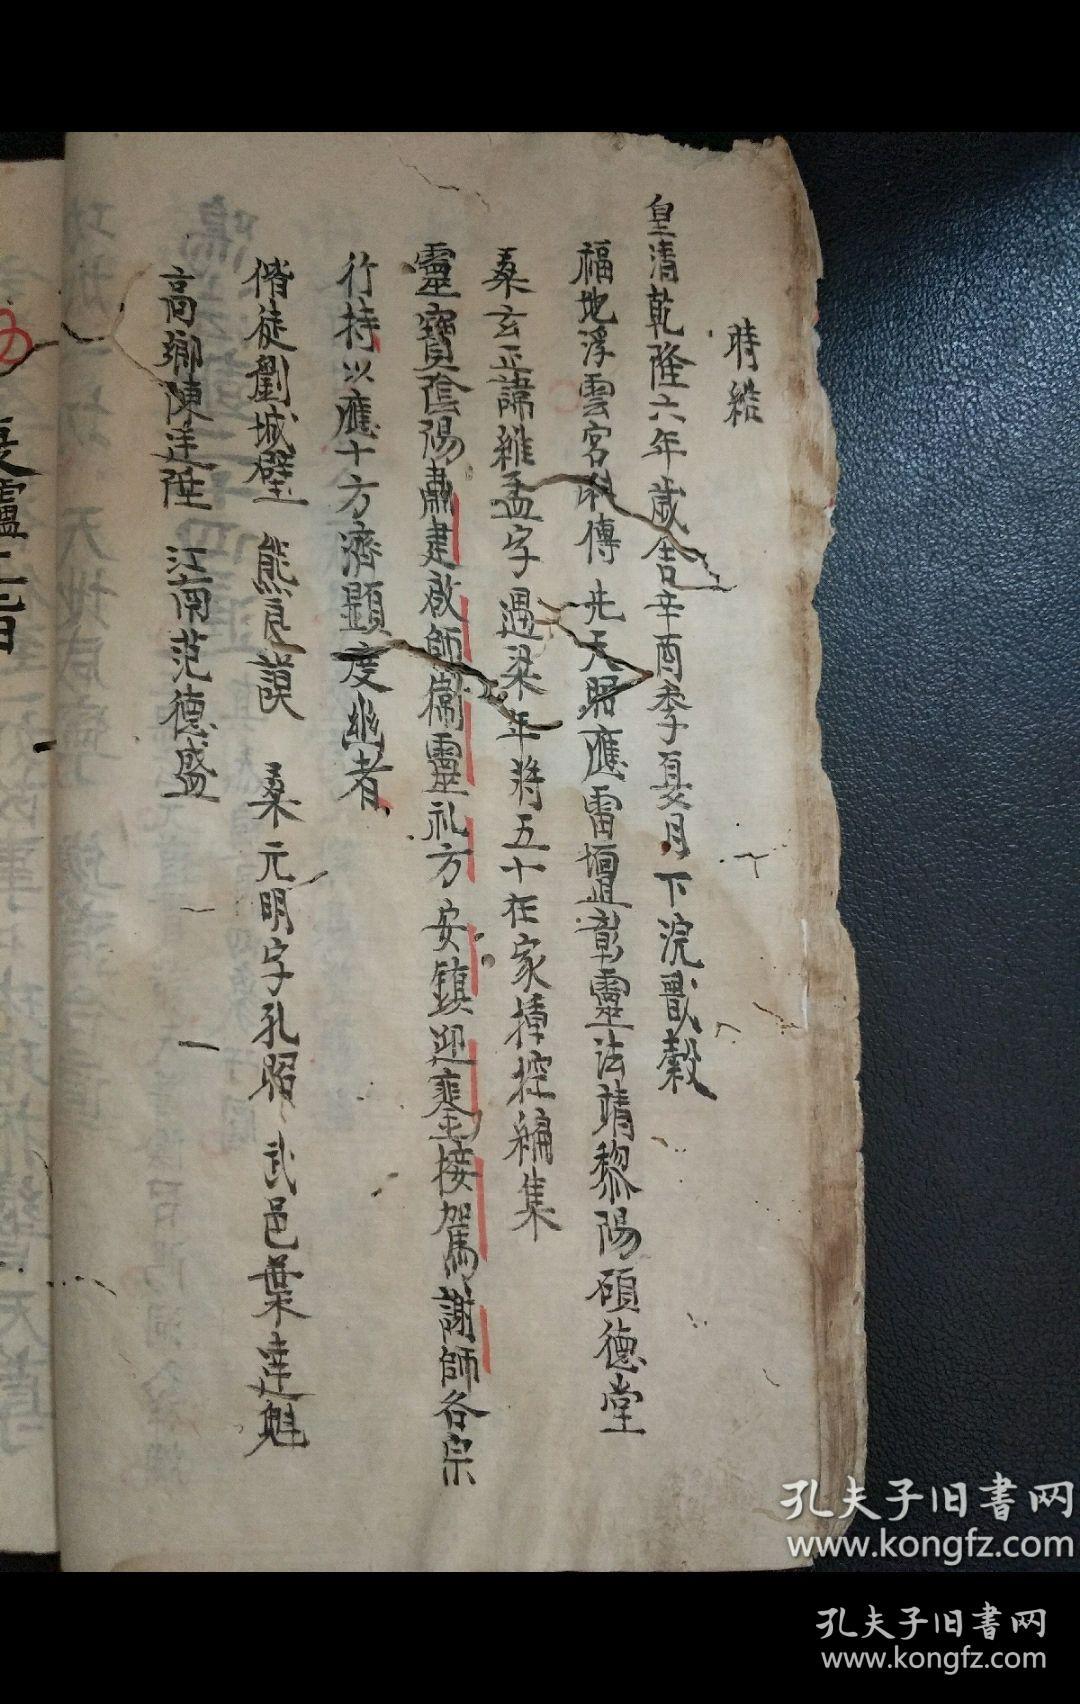 時維
皇清乾隆六年歲舍辛酉季夏月下浣戩穀
福地浮雲宮 傳先天昭應雷壇彰靈法靖黎陽碩德堂
桑玄正諱維孟字遇梁年將五十在家 控編集
靈寶陰陽肅建啟師衛靈礼方安鎮迎鑾接駕謝師各宗
行持以應十方濟顯度幽者
脩徒劉城璧 熊良謨 桑元明字孔昭 武邑葉達魁
高鄉陳廷陞 江南范德盛
孔夫子旧書网
www.kongfz.com
孔夫子旧書网
www.kongfz.com